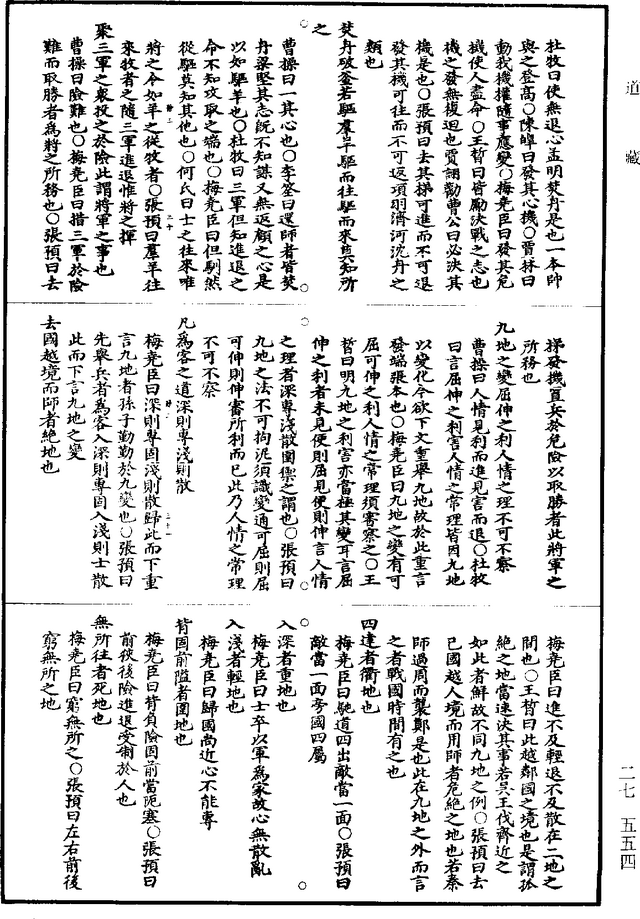 道藏
杜牧曰使無退心孟明焚舟是也一本帥
與之登高○陳皞曰發其心機○賈林曰
動我機權隨事應變○梅堯臣曰發其危
機使人盡命○王晳曰皆勵決戰之志也
機之發無復迴也賈詡勸曹公曰必決其
機是也○張預曰去其梯可進而不可退
發其機可往而不可返項羽濟河沈舟之
類也
焚舟破釜若驅羣羊驅而往驅而來莫知所
之
曹操曰一其心也○李筌曰還師者皆焚
舟梁堅其志既不知謀又無返顧之心是
以如驅羊也○杜牧曰三軍但知進退之
命不知攻取之端也○梅堯臣曰但馴然
從驅莫知其他也○何氏曰士之往來唯
將之令如羊之從牧者○張預曰羣羊往
來牧者之隨三軍進退惟將之揮
聚三軍之衆投之於險此謂將軍之事也
曹操曰險難也○梅堯臣曰措三軍於險
難而取勝者爲將之所務也○張預曰去
梯發機置兵於危險以取勝者此將軍之
所務也
九地之變屈伸之利人情之理不可不察
曹操曰人情見利而進見害而退○杜牧
曰言屈伸之利害人情之常理皆因九地
以變化今欲下文重舉九地故於此重言
發端張本也○梅堯臣曰九地之變有可
屈可伸之利人情之常理須審察之○王
晳曰明九地之利害亦當極其變耳言屈
伸之利者未見便則屈見便則伸言人情
之理者深專淺散圍禦之謂也○張預曰
九地之法不可拘泥須識變通可屈則屈
可伸則伸審所利而已此乃人情之常理
不可不察
凡爲客之道深則專淺則散
梅堯臣曰深則專固淺則散歸此而下重
言九地者孫子勤勤於九變也○張預曰
先舉兵者爲客入深則專固入淺則士散
此而下言九地之變
去國越境而師者絶地也
梅堯臣曰進不及輕退不及散在二地之
間也○王晳曰此越鄰國之境也是謂孤
絶之地當速決其事若吳王伐齊近之
如此者鮮故不同九地之例○張預曰去
己國越人境而用師者危絶之地也若秦
師過周而襲鄭是也此在九地之外而言
之者戰國時間有之也
四達者衢地也
梅堯臣曰馳道四出敵當一面○張預曰
敵當一面旁國四屬
入深者重地也
梅堯臣曰士卒以軍爲家故心無散亂
入淺者輕地也
梅堯臣曰歸國尚近心不能專
背固前隘者圍地也
梅堯臣曰背負險固前當阨塞○張預曰
前狹後險進退受制於人也
無所往者死地也
梅堯臣曰窮無所之○張預曰左右前後
窮無所之地
二七 五五四